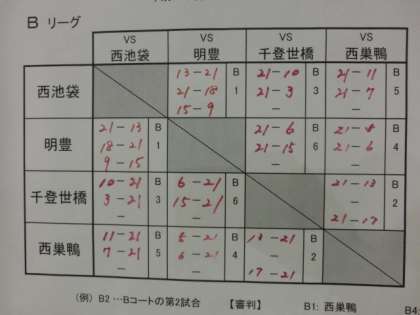 B リーグ
VS 西池袋 VS 明豊 VS 千登世橋 VS 西巣鴨
西池袋 13-21 21-18 15-9 B 1 21-10 21-3 - B 3 21-11 21-7 - B 5
明豊 21-13 18-21 9-15 B 1 21-6 21-15 - B 6 21-6 - B 4
千登世橋 10-21 3-21 - B 3 6-21 15-21 - B 6 21-13 - 21-17 B 2
西巣鴨 11-21 7-21 - B 5 5-21 6-21 - B 4 13-21 - 17-21 B 2
(例) B2 …Bコートの第2試合 【審判】 B1: 西巣鴨 B4